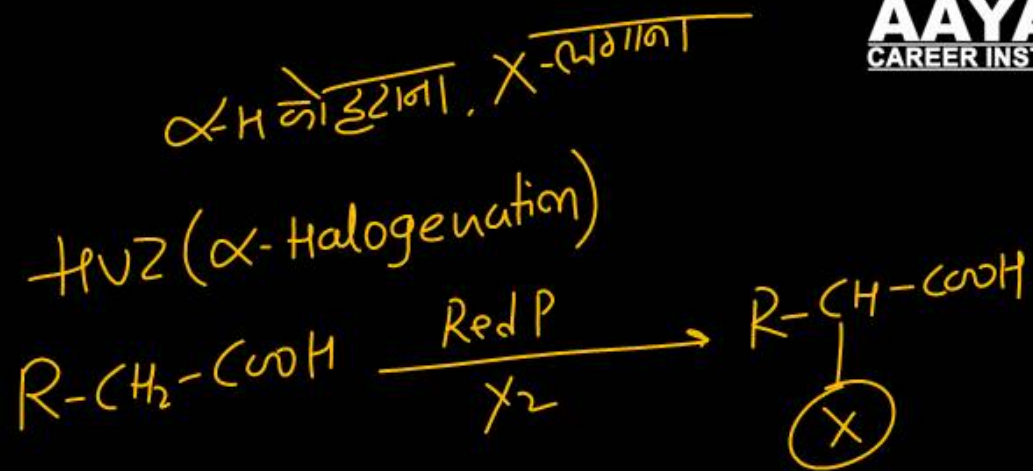 AAYA
CAREER INS
α-H को हटाना, X-लगाना
HVZ (α-Halogenation)
R-CH₂-COOH Red P X₂ → R-CH-COOH
X